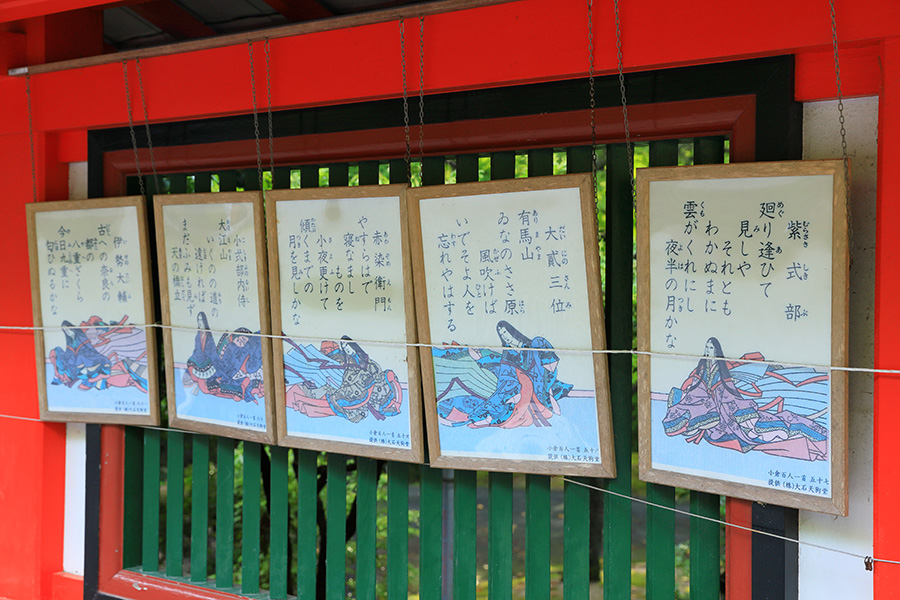 紫式部
廻り逢ひて
見しや
それとも
わかぬまに
雲がくれにし
夜半の月かな
小倉百人一首 五十七
提供(株)大石天狗堂
大貳三位
有馬山
ゐなのささ原
風吹けば
いでそよ人を
忘れやはする
小倉百人一首 五十八
提供(株)大石天狗堂
赤染衛門
やすらはで
寝なまし
ものを
小夜更けて
傾くまでの
月を見しかな
小倉百人一首 五十九
提供(株)大石天狗堂
小式部内侍
大江山
いくのの道の
遠ければ
まだふみも見ず
天の橋立
小倉百人一首 六十
提供(株)大石天狗堂
伊勢大輔
古への奈良の
都の
八重ざくら
今日九重に
匂ひぬるかな
小倉百人一首 六十一
提供(株)大石天狗堂